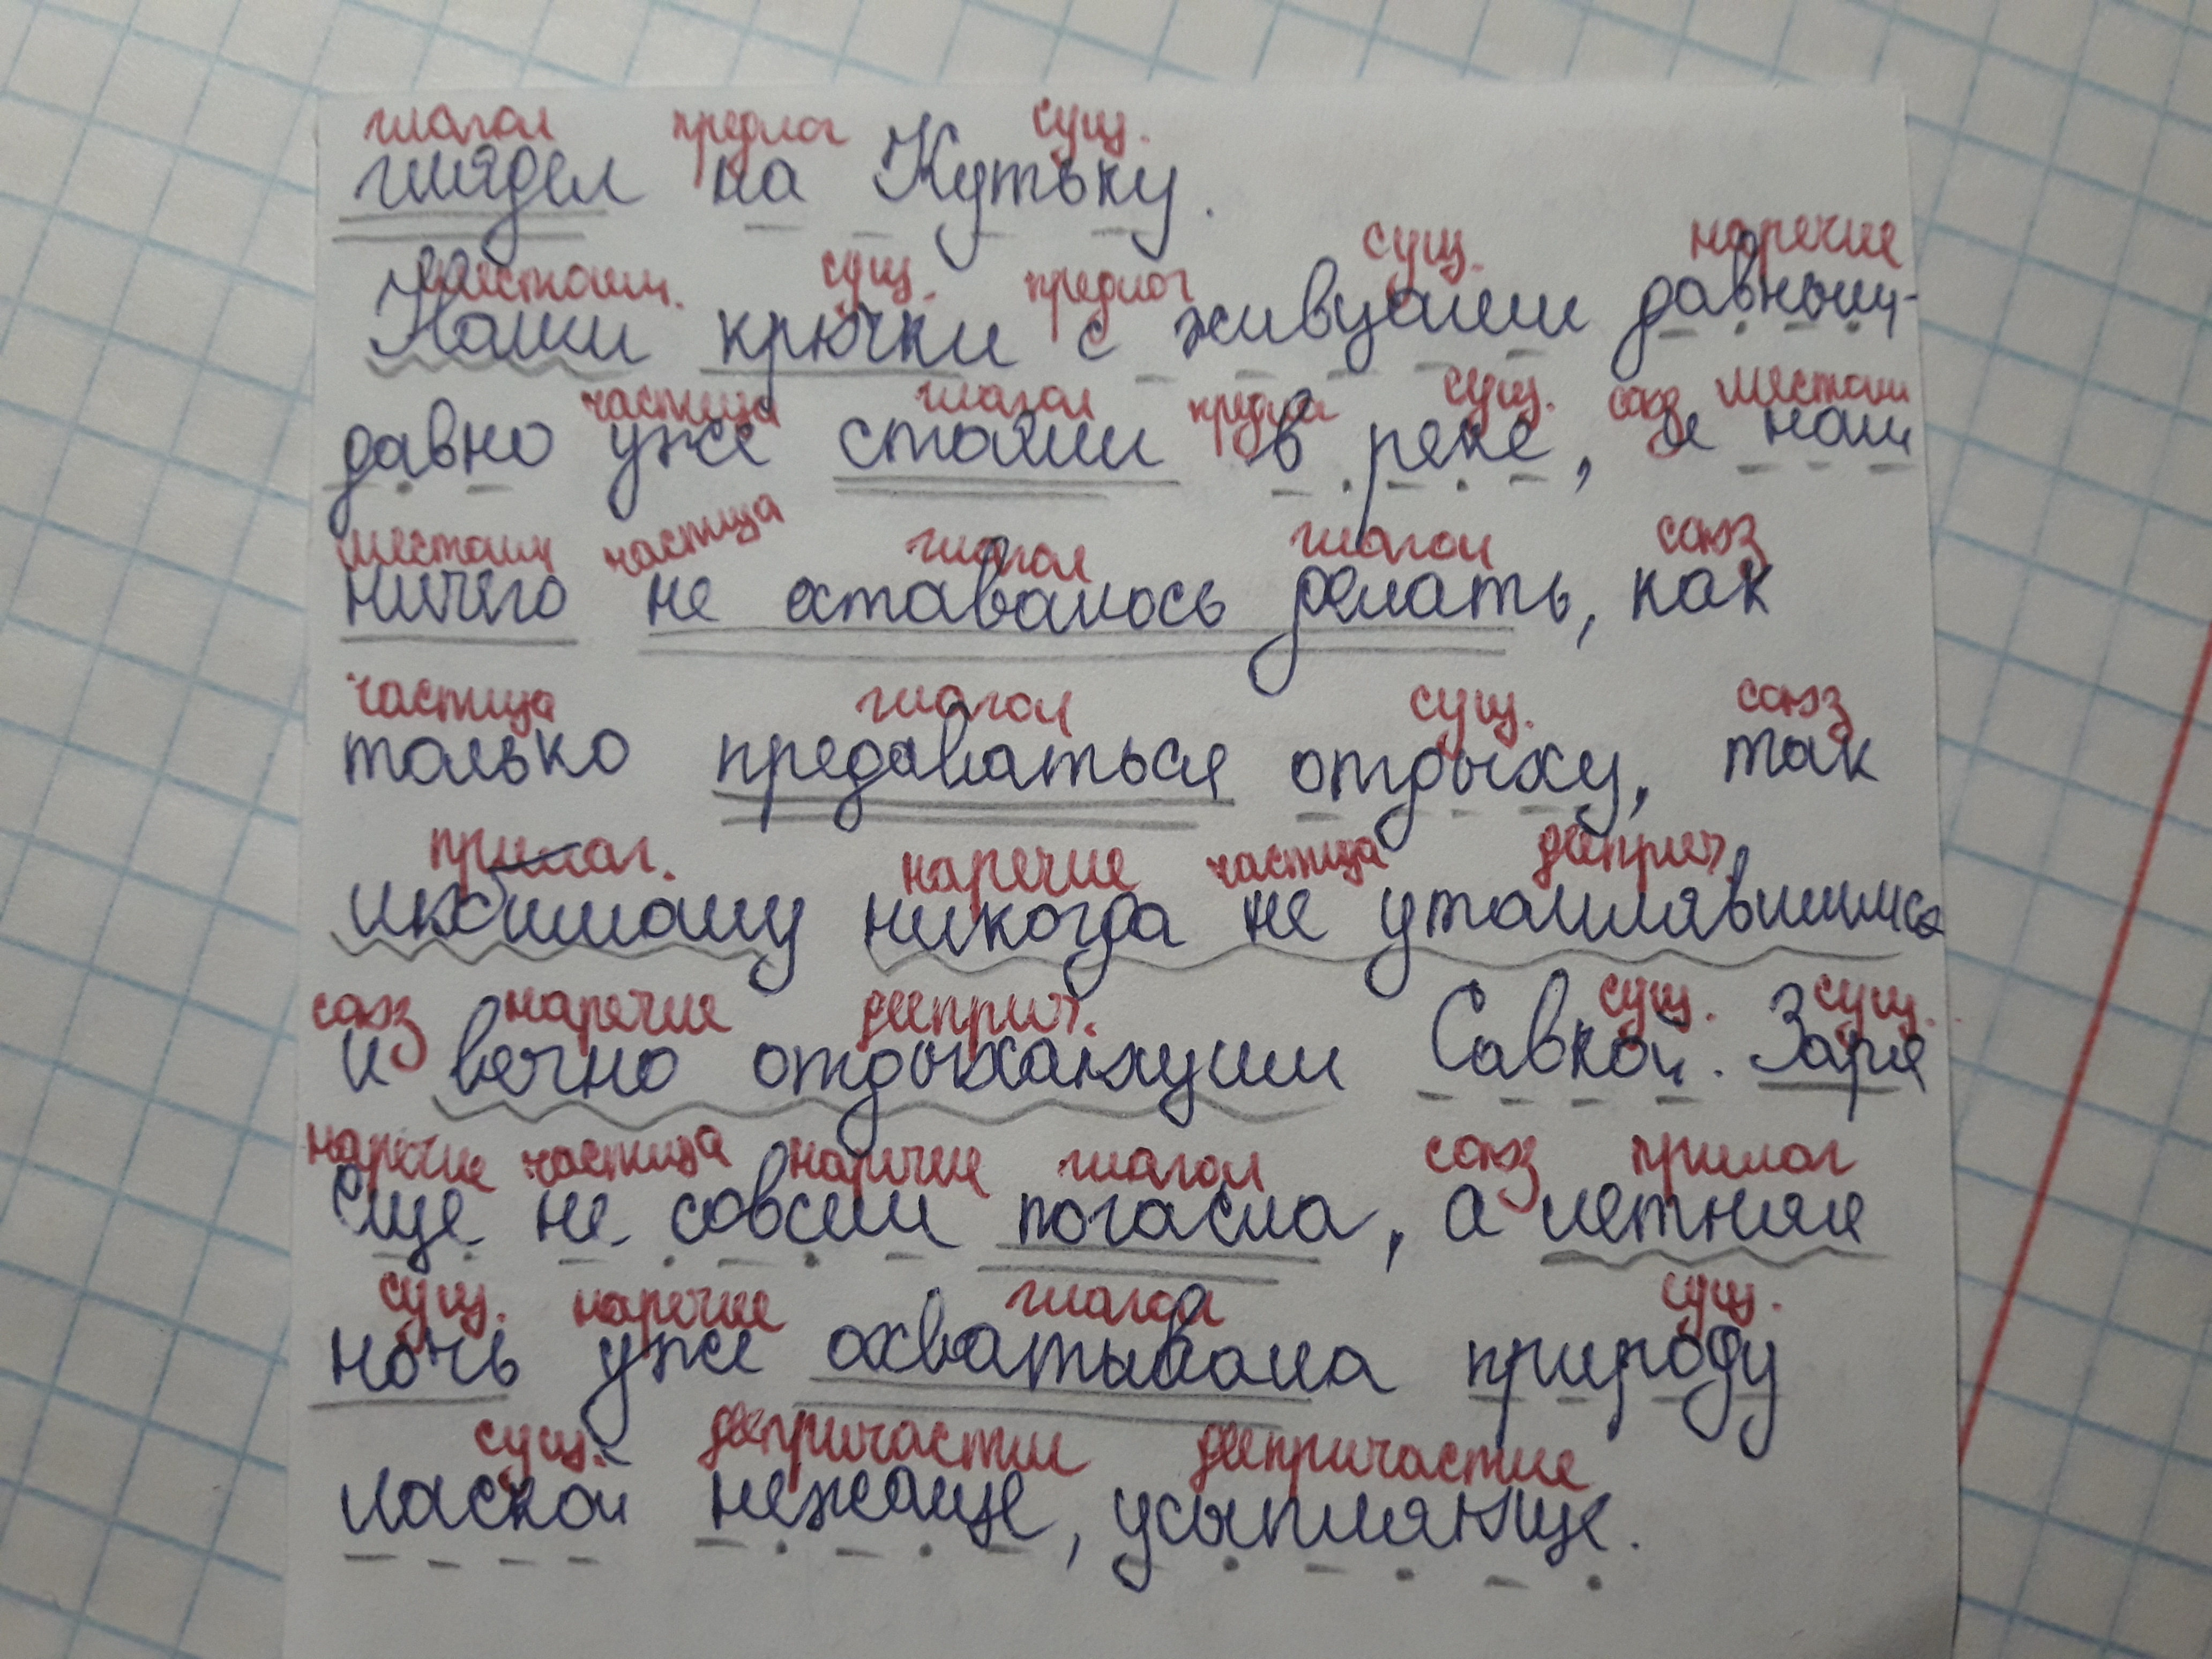 глагол предлог сущ.
глядел на Кутьку.
местоим. сущ. предлог сущ. наречие
Наши крючки с живцами давным-
частица глагол предлог сущ. союз местоим
давно уже стояли в реке, и нам
местоим частица глагол глагол союз
ничего не оставалось делать, как
частица глагол сущ. союз
только предаваться отдыху, так
прилаг. наречие частица дееприч.
любимому никогда не утомлявшимся
союз наречие дееприч. сущ. сущ.
и вечно отдыхающим Савкой. Заря
наречие частица наречие глагол союз прилаг
еще не совсем погасла, а летняя
сущ. наречие глагол сущ.
ночь уже охватывала природу
сущ. деепричастии деепричастие
лаской нежаще, усыпляюще.